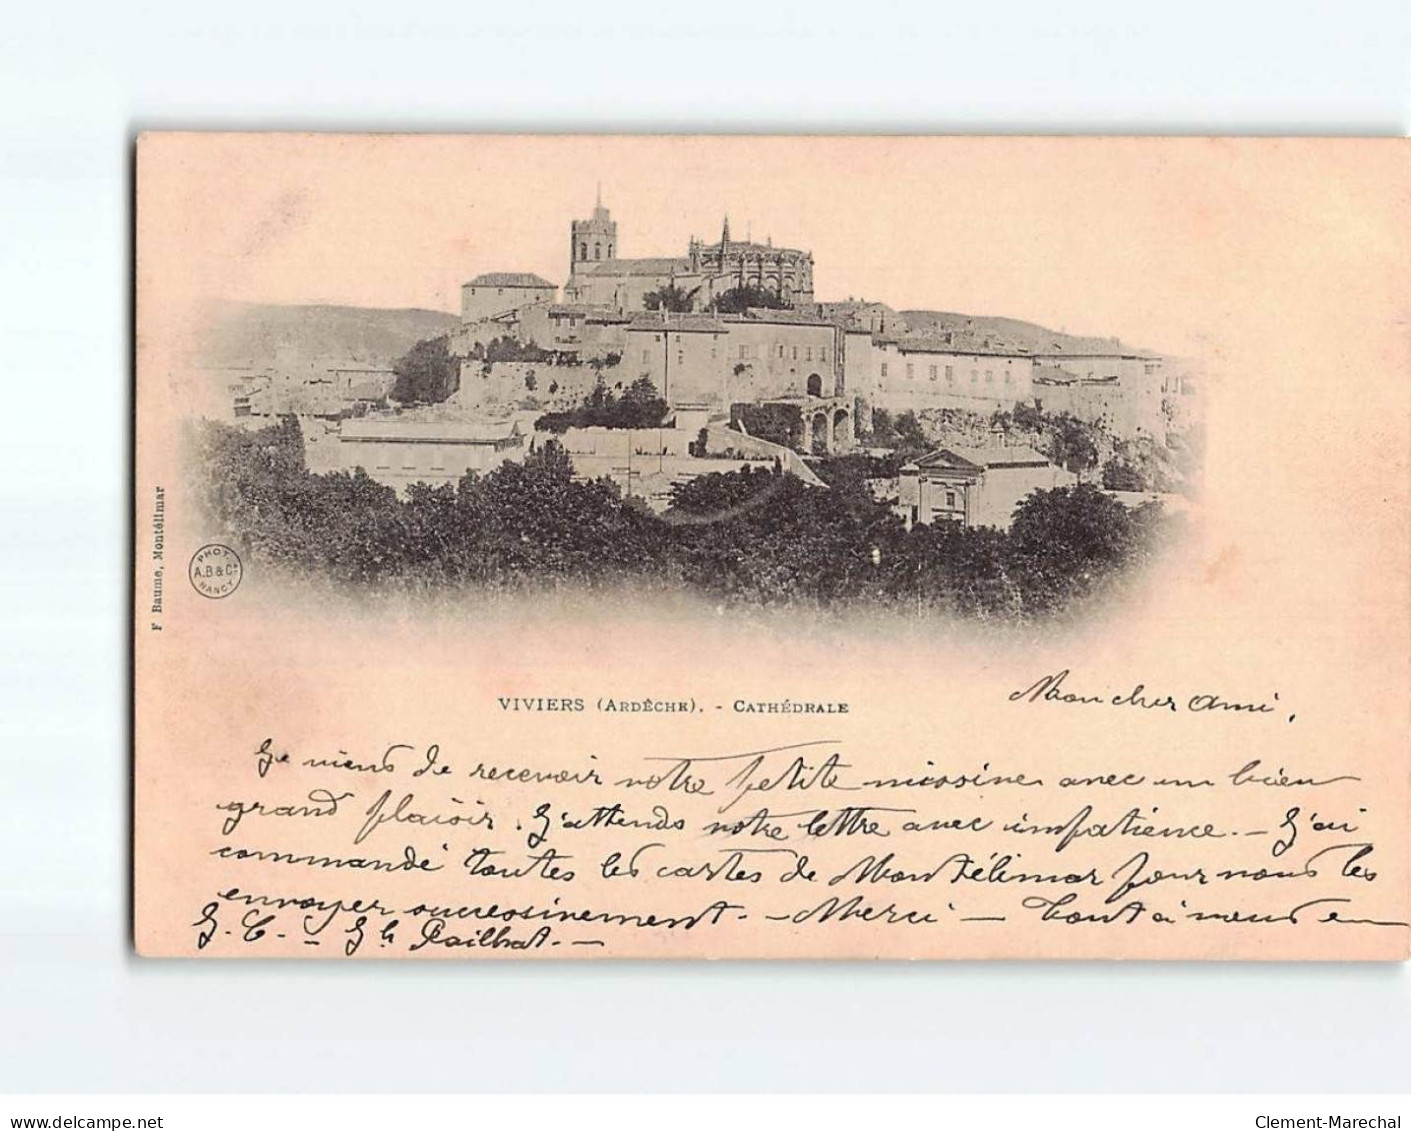 F Baume, Montélimar
PHOT
A.B & Cº
NANCY
VIVIERS (ARDÈCHE). - CATHÉDRALE
Mon cher ami,
Je viens de recevoir votre petite missive avec un bien
grand plaisir. J'attends votre lettre avec impatience. - J'ai
commandé toutes les cartes de Montélimar pour vous les
envoyer successivement. - Merci - Tout à vous en
J. C. - Pailhat. -
www.delcampe.net
Clement-Marechal